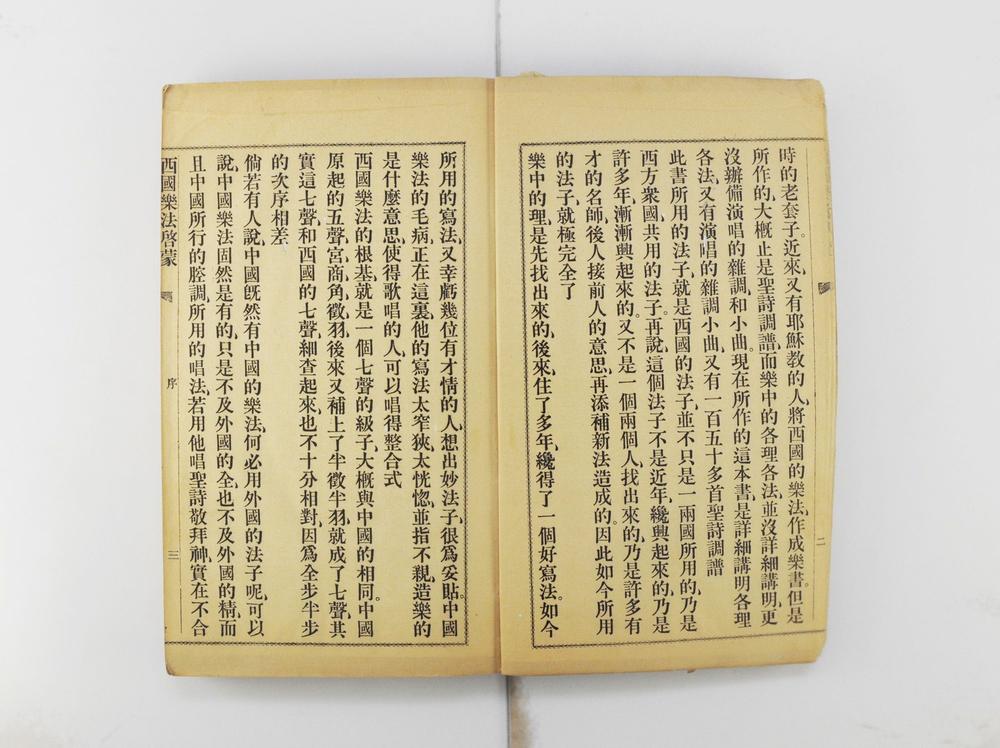 時的老套子。近來、又有耶穌教的人、將西國的樂法、作成樂書。但是
所作的、大概止是聖詩調譜、而樂中的各理各法、並沒詳細講明、更
沒辦備演唱的雜調、和小曲。現在所作的這本書、是詳細講明各理
各法、又有演唱的雜調小曲、又有一百五十多首聖詩調譜
此書所用的法子、就是西國的法子、並不只是一兩國所用的、乃是
西方衆國、共用的法子。再說、這個法子、不是近年纔興起來的、乃是
許多年、漸漸興起來的。又不是一個兩個人、找出來的、乃是許多有
才的名師、後人接前人的意思、再添補新法造成的。因此如今所用
的法子、就極完全了
樂中的理、是先找出來的、後來、住了多年、纔得了一個好寫法。如今
二
所用的寫法、又幸虧幾位有才情的人、想出妙法子、很爲妥貼。中國
樂法的毛病、正在這裏、他的寫法太窄狹、太恍惚、並指不親、造樂的
是什麼意思、使得歌唱的人、可以唱得整合式
西國樂法的根基、就是一個七聲的級子、大概與中國的相同。中國
原起的五聲、宮商角徵羽、後來又補上了半徵半羽、就成了七聲、其
實這七聲、和西國的七聲、細查起來、也不十分相對、因爲全步半步
的次序相差
倘若有人說、中國旣然有中國的樂法、何必用外國的法子呢、可以
說、中國樂法固然是有的、只是不及外國的全、也不及外國的精、而
且中國所行的腔調、所用的唱法、若用他唱聖詩敬拜神、實在不合
西國樂法啓蒙
序
三